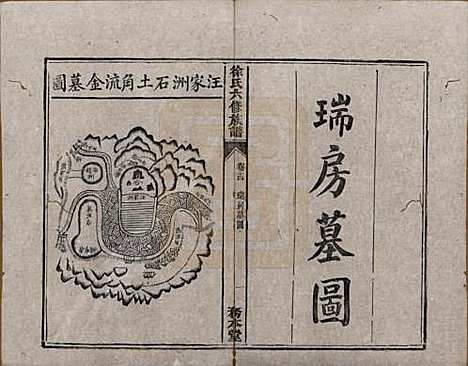 瑞房墓圖
徐氏六修族譜
卷之四
瑞房墓圖
務本堂
汪家洲石土角流金墓圖